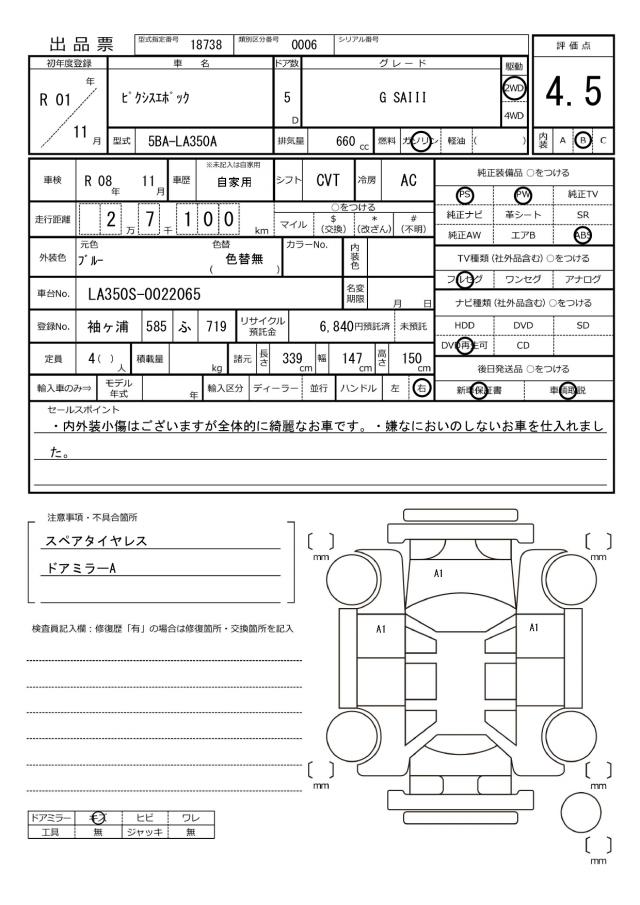 出品票 型式指定番号 18738 類別区分番号 0006 シリアル番号
評価点
4.5
内装 A B C
初年度登録 車名 ドア数 グレード 駆動
R 01 年 11 月 ﾋﾟｸｼｽｴﾎﾟｯｸ 5 D G SAIII 2WD 4WD
型式 5BA-LA350A 排気量 660 cc 燃料 ガソリン 軽油 ( )
車検 R 08 年 11 月 車歴 ※未記入は自家用 自家用 シフト CVT 冷房 AC
走行距離 2 万 7 千 1 0 0 km
○をつける
マイル $ (交換) * (改ざん) # (不明)
外装色 元色 ﾌﾞﾙｰ 色替 ( 色替無 ) カラーNo. 内装色
車台No. LA350S-0022065 名変期限 月 日
登録No. 袖ヶ浦 585 ふ 719 リサイクル預託金 6,840円預託済 未預託
定員 4( ) 人 積載量 kg 諸元 長さ 339 cm 幅 147 cm 高さ 150 cm
輸入車のみ⇒ モデル年式 年 輸入区分 ディーラー 並行 ハンドル 左 右
純正装備品 ○をつける
PS PW 純正TV
純正ナビ 革シート SR
純正AW エアB ABS
TV種類 (社外品含む) ○をつける
フルセグ ワンセグ アナログ
ナビ種類 (社外品含む) ○をつける
HDD DVD SD
DVD再生可 CD
後日発送品 ○をつける
新車保証書 車輌取説
セールスポイント
・内外装小傷はございますが全体的に綺麗なお車です。・嫌なにおいのしないお車を仕入れまし
た。
注意事項・不具合箇所
スペアタイヤレス
ドアミラーA
検査員記入欄：修復歴「有」の場合は修復箇所・交換箇所を記入
ドアミラー キズ ヒビ ワレ
工具 無 ジャッキ 無
〔 〕 mm
〔 〕 mm
A1
A1
A1
〔 〕 mm
〔 〕 mm
〔 〕 mm